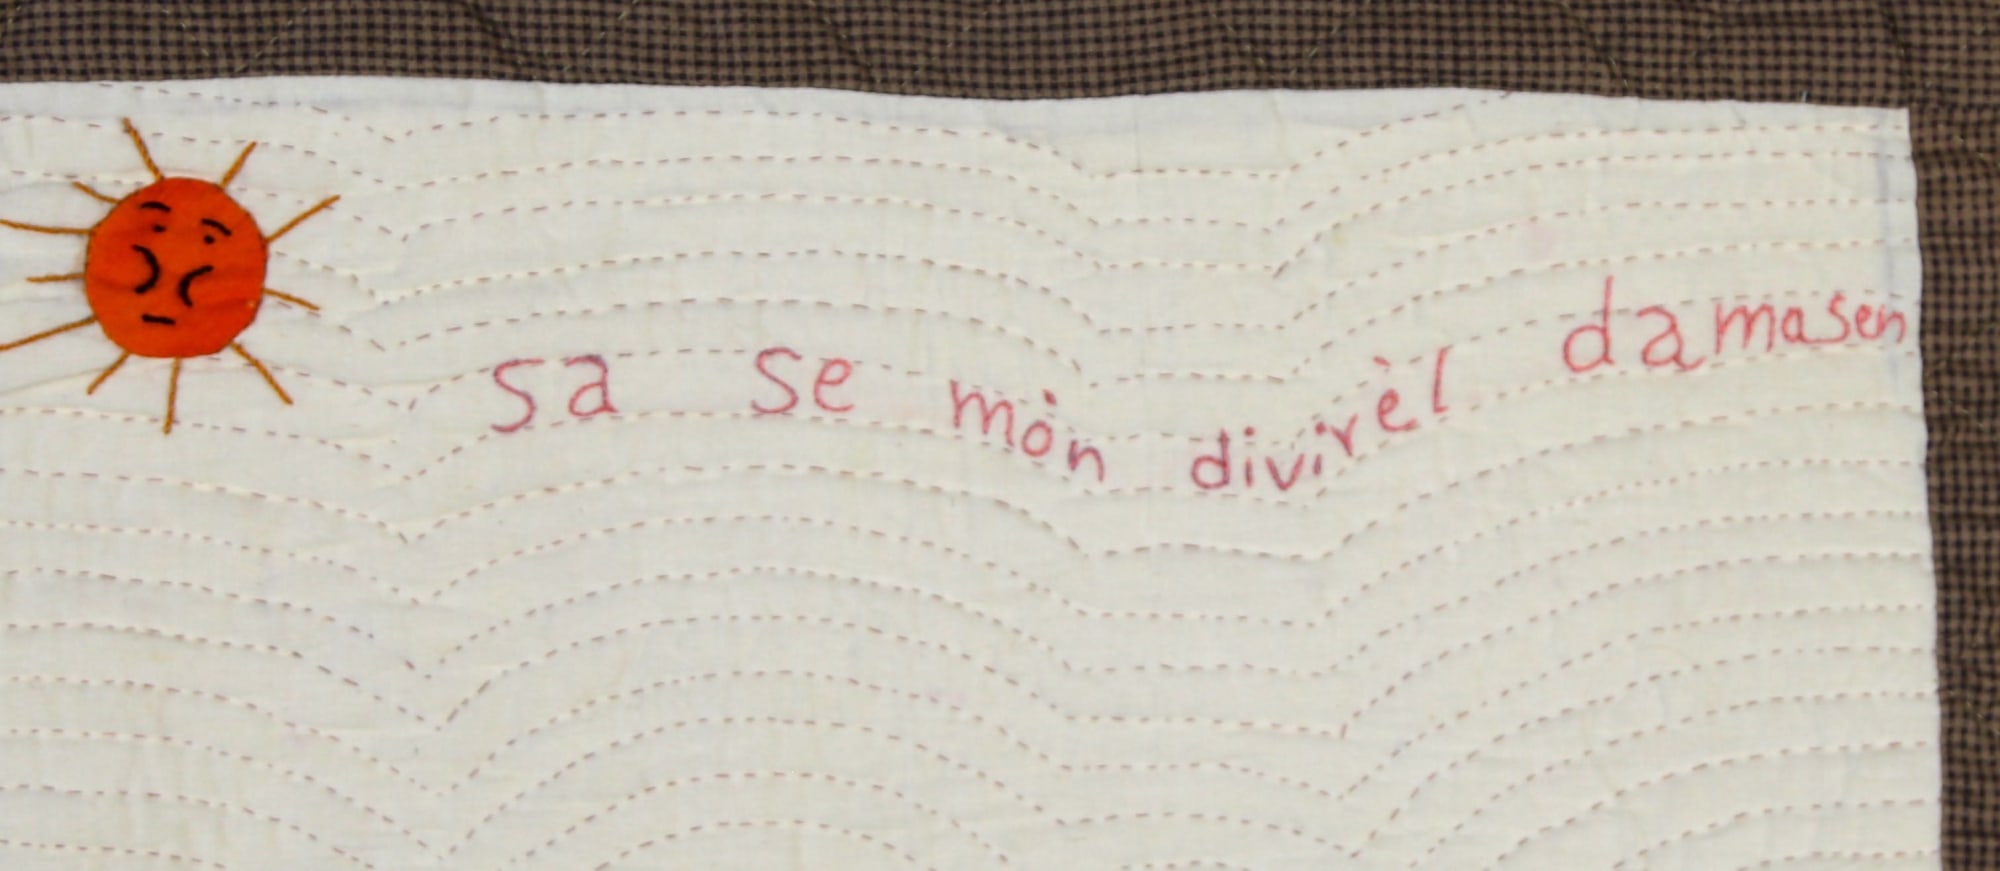 sa se mòn divivèl damasen